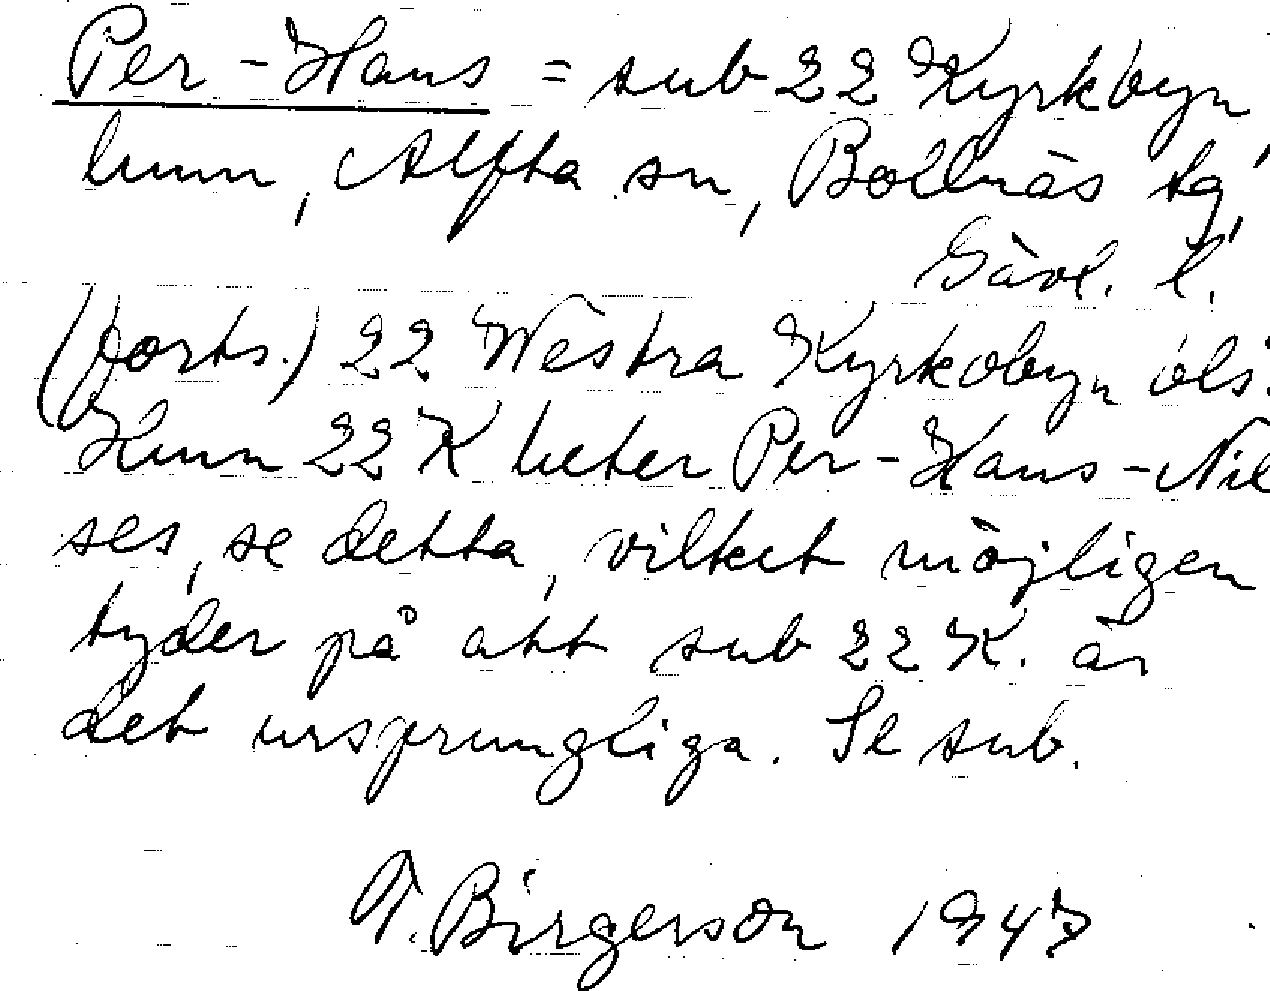 Per-Hans = sub 22 Kyrkbyn,
hmn, Alfta sn, Bollnäs tg,
Gävl. l.
(forts.) 22 Westra Kyrkobyn
Hmn 22 K heter Per-Hans-Nil
ses, se detta, vilket möjligen
tyder på att sub 22 K. är
det ursprungliga. Se sub.
T. Birgerson 1947